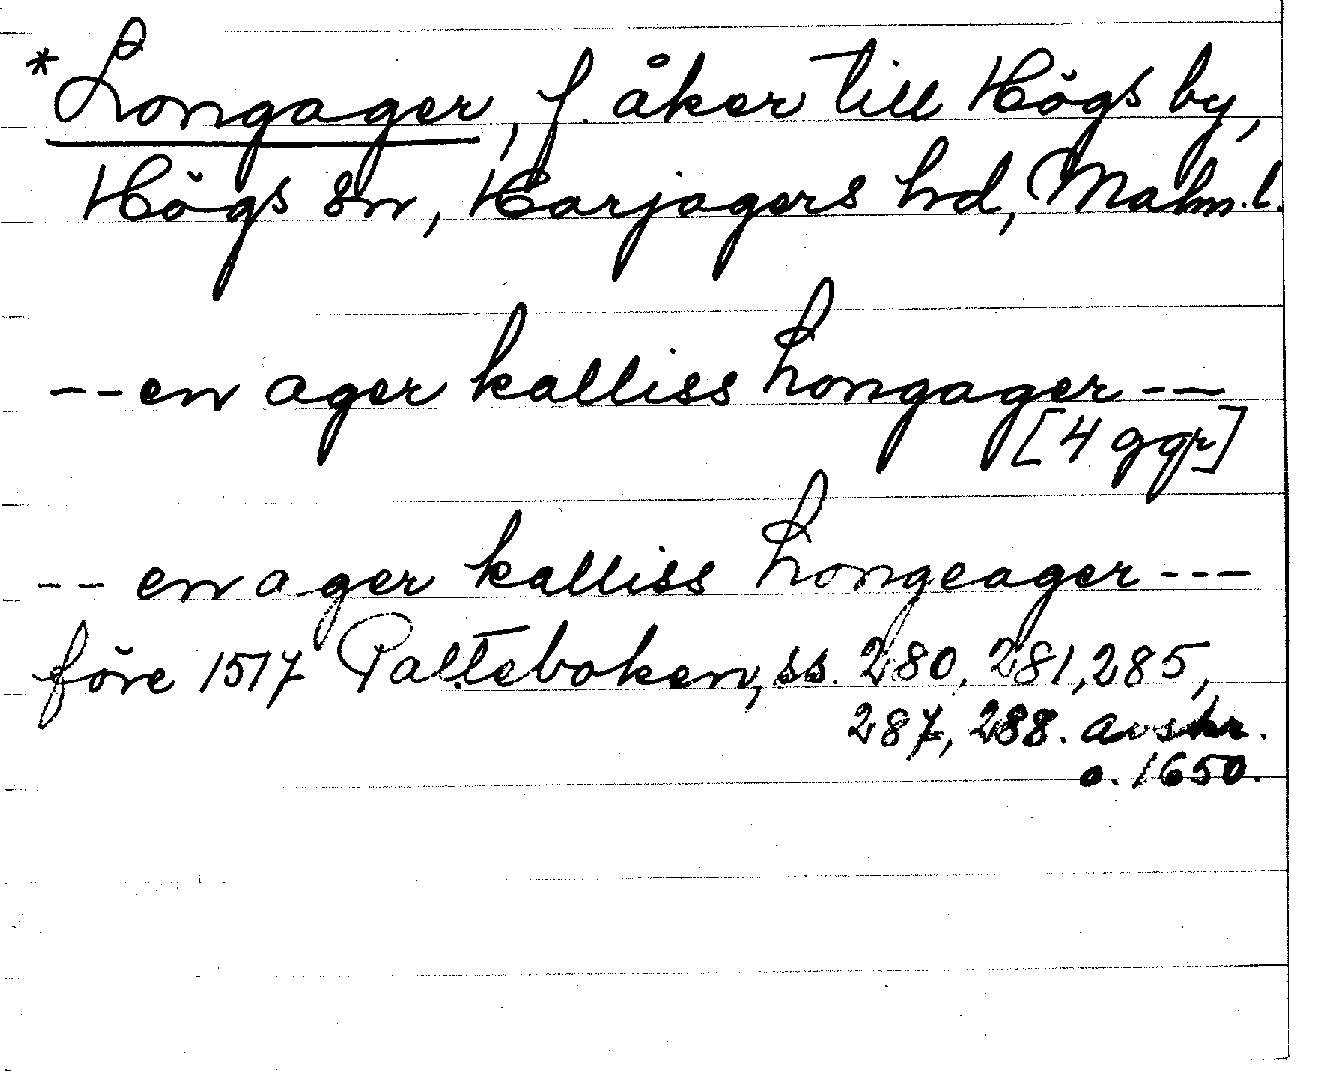 *Longager, f. åker till Högs by,
Högs sn, Harjagers hd, Malm.l.
-- en ager kalliss Longager --
[4 ggr]
-- en ager kalliss Longeager ---
före 1517 Palteboken, ss. 280, 281, 285,
287, 288. avskr.
o. 1650.